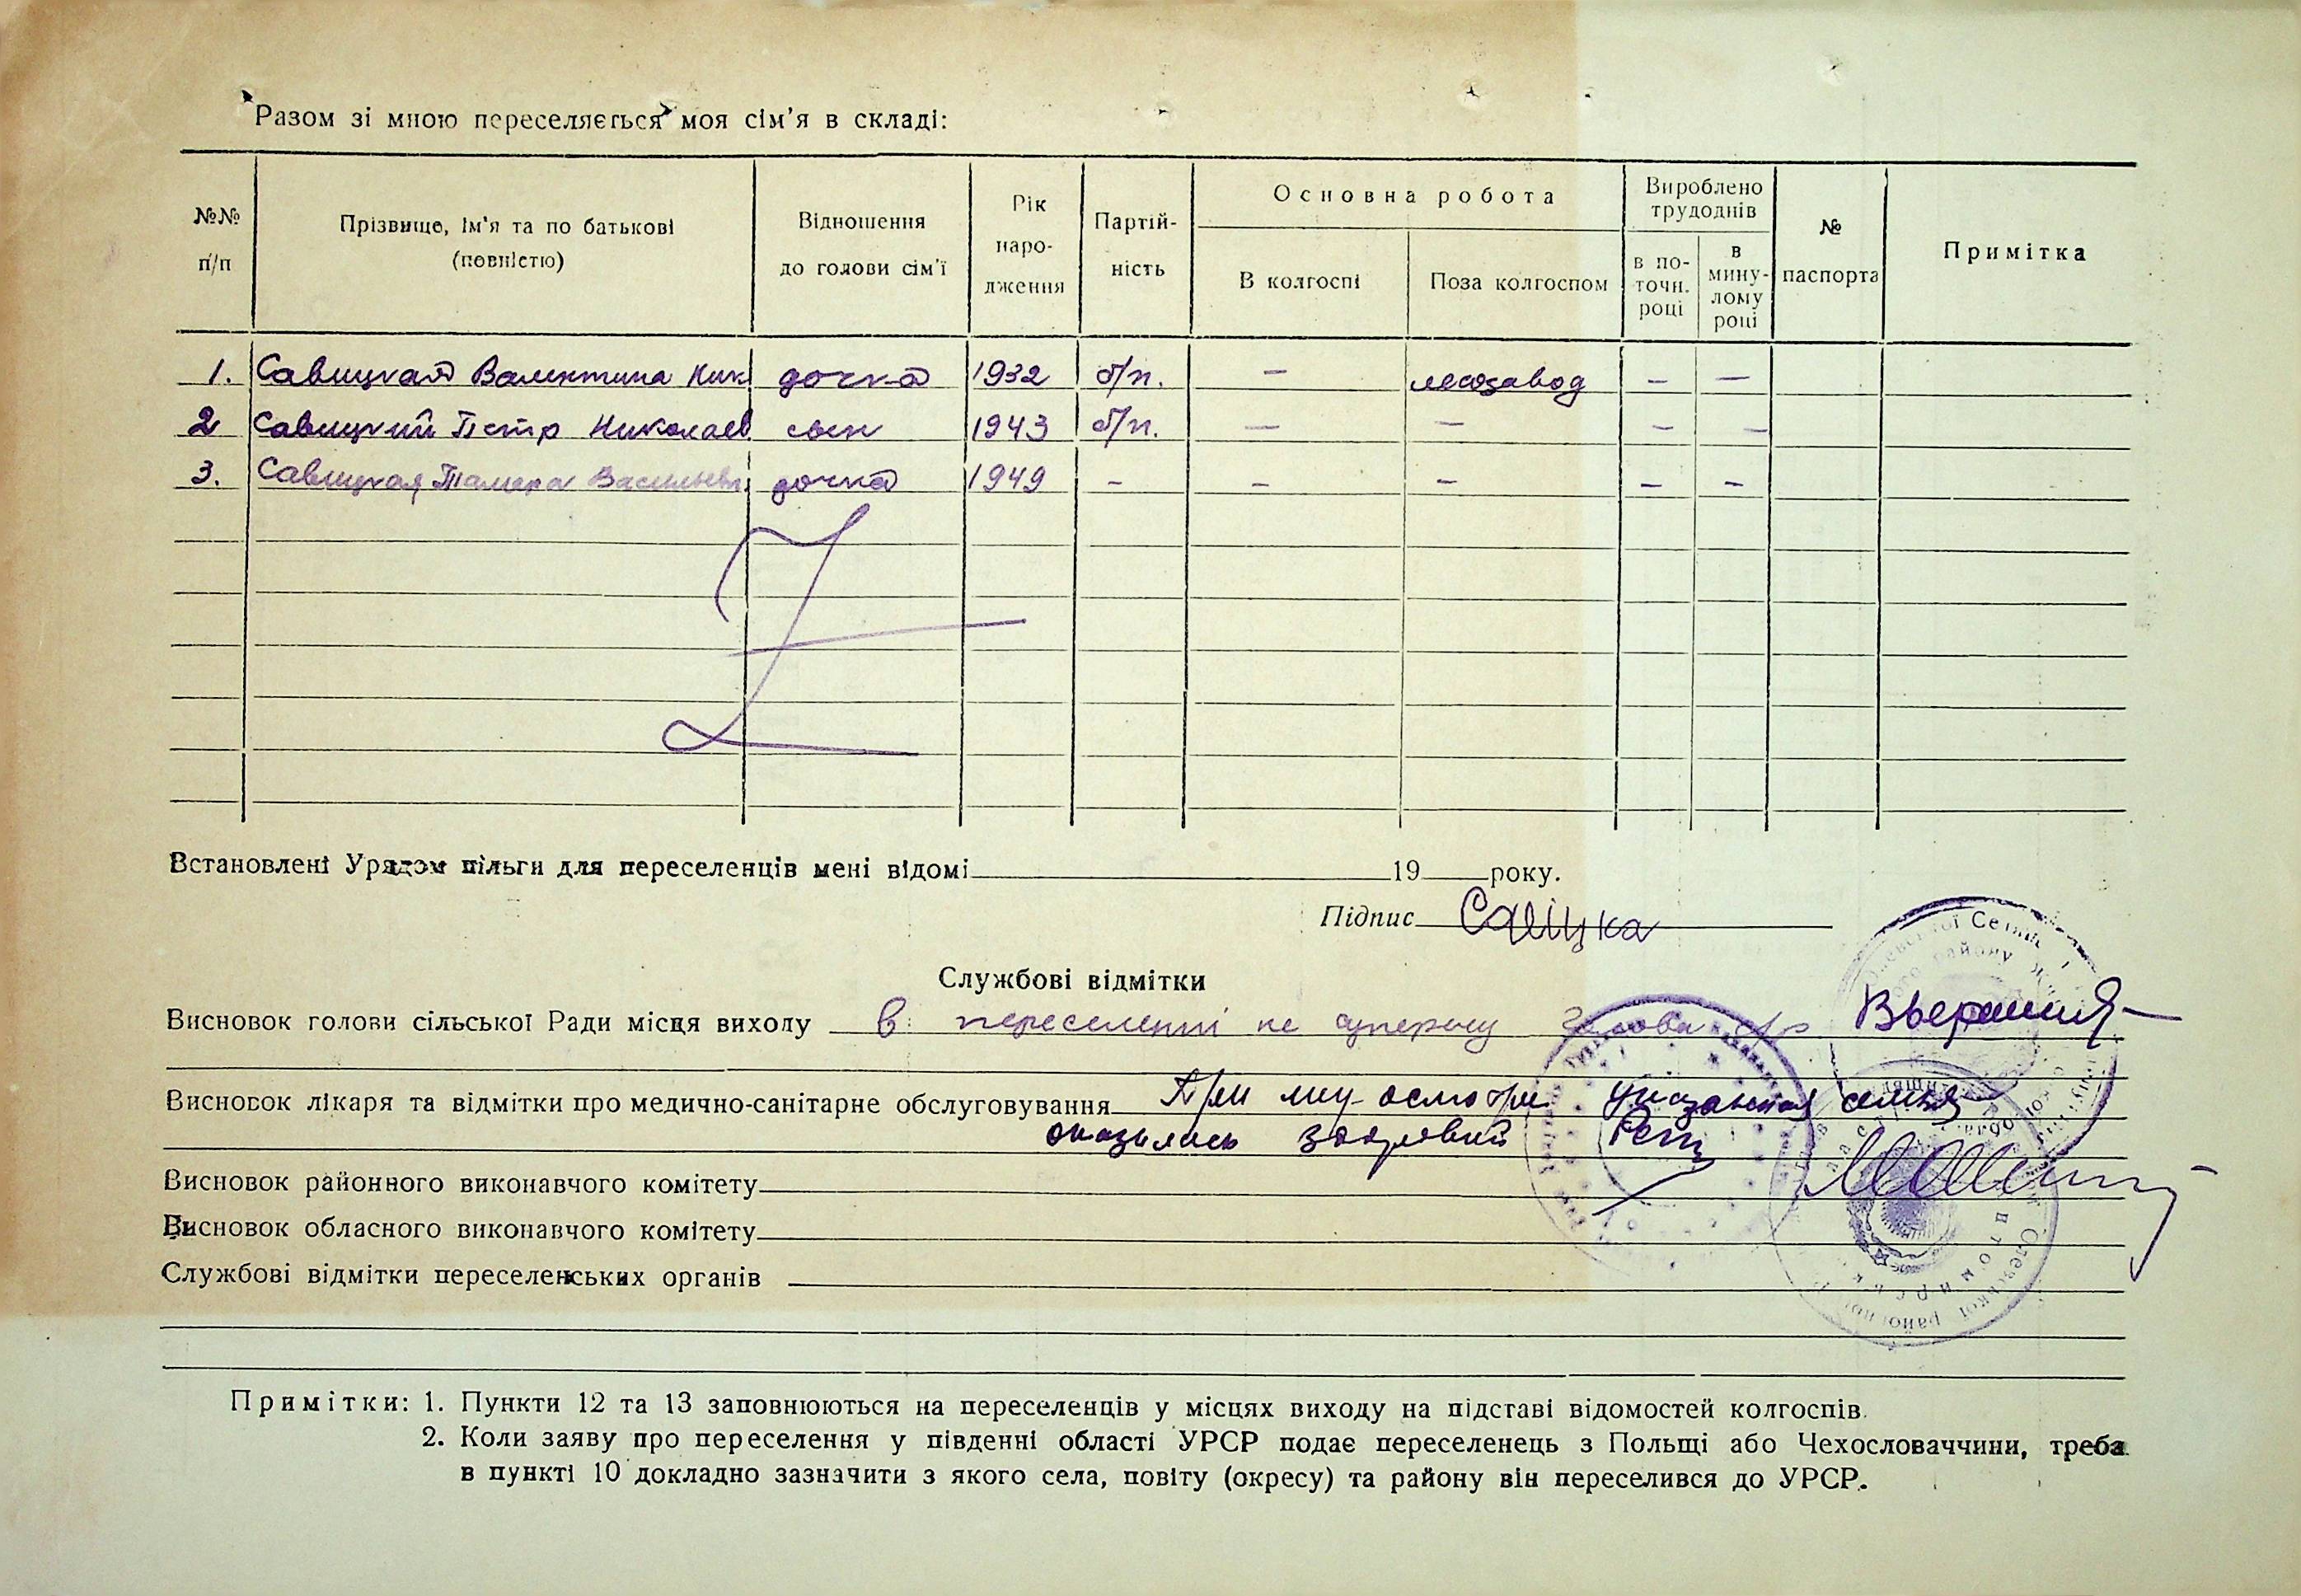 Разом зі мною переселяється моя сім'я в складі:
№№ п/п
Прізвище, ім'я та по батькові (повністю)
Відношення до голови сім'ї
Рік народження
Партійність
Основна робота
В колгоспі
Поза колгоспом
Вироблено трудоднів
в поточн. році
в минулому році
№ паспорта
Примітка
1. Савицкая Валентина Ник дочка 1932 б/п. — лесозавод — —
2 Савицкий Петр Николаев сын 1943 б/п. — — — —
3. Савицкая Тамара Васильевн. дочка 1949 – – – – –
Встановлені Урядом пільги для переселенців мені відомі 19 року.
Підпис
Службові відмітки
Висновок голови сільської Ради місця виходу В переселенні не Голова с/р
Висновок лікаря та відмітки про медично-санітарне обслуговування При осмотре указанная семья
оказалась здоровой
Висновок районного виконавчого комітету
Висновок обласного виконавчого комітету
Службові відмітки переселенських органів
Примітки: 1. Пункти 12 та 13 заповнюються на переселенців у місцях виходу на підставі відомостей колгоспів.
2. Коли заяву про переселення у південні області УРСР подає переселенець з Польщі або Чехословаччини, треба
в пункті 10 докладно зазначити з якого села, повіту (окресу) та району він переселився до УРСР.